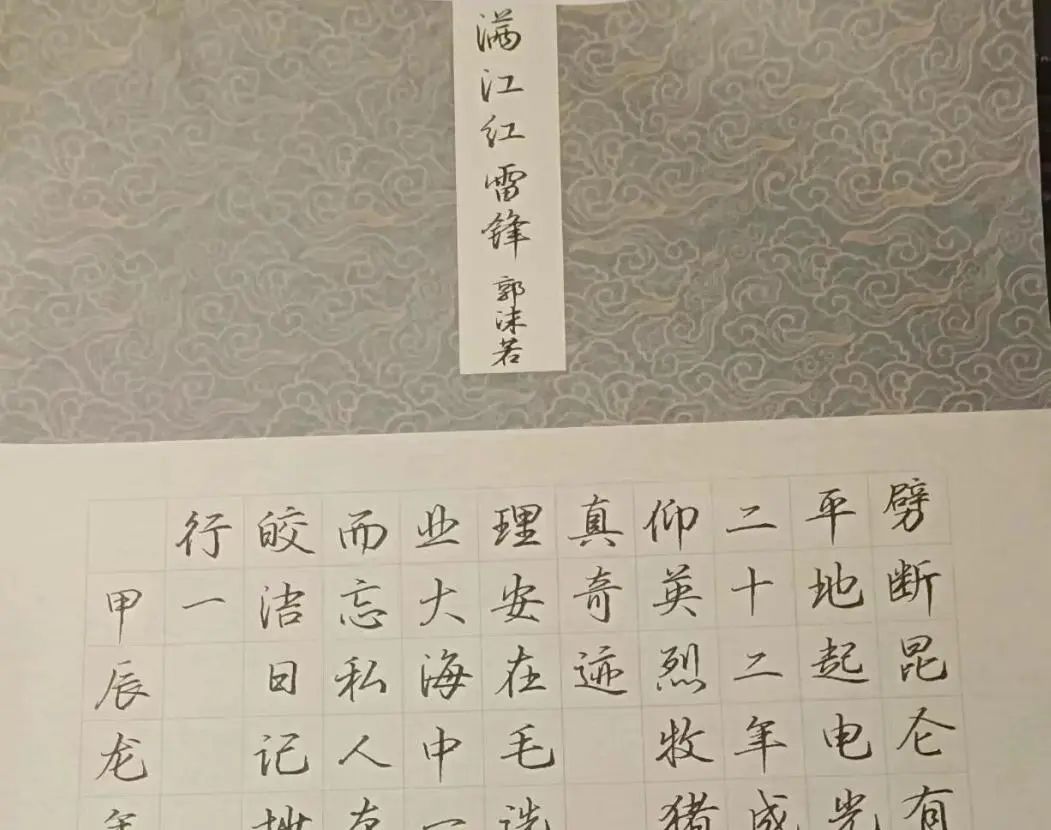 满江红雷锋 郭沫若
劈断昆仑有
平地起电光
二十二年成
仰英烈牧猪
真奇迹
理安在毛选
业大海中一
而忘私人
皎洁日记
行一
甲辰龙年